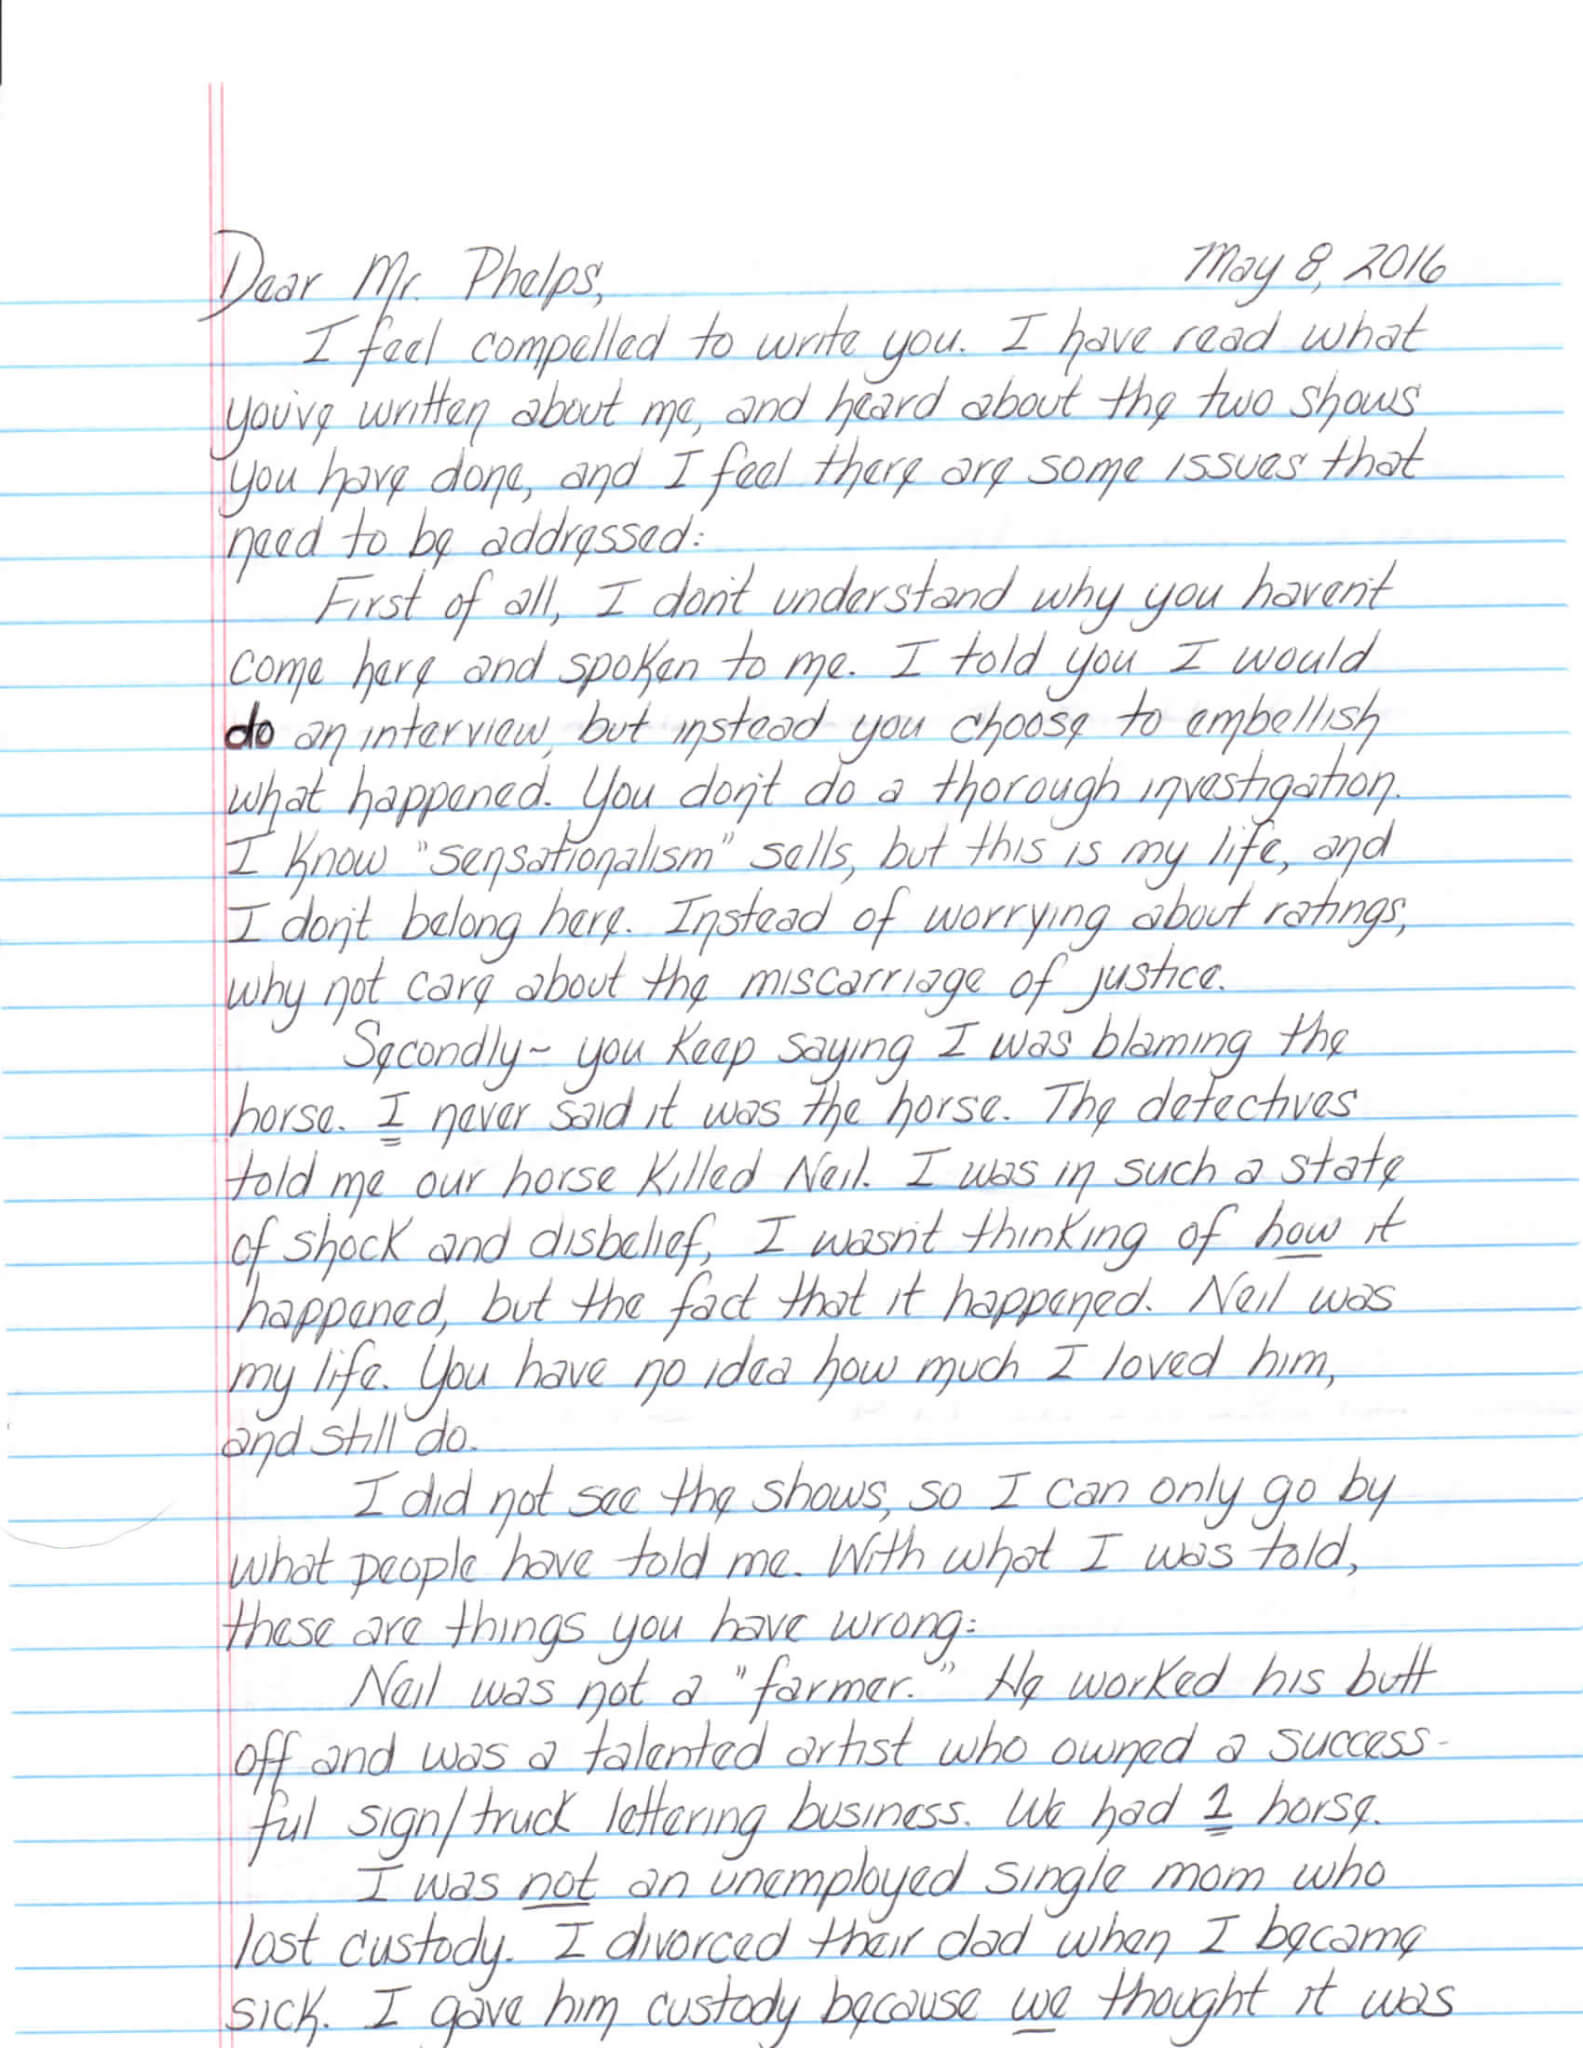 Dear Mr. Phelps, May 8, 2016
I feel compelled to write you. I have read what
you've written about me, and heard about the two shows
you have done, and I feel there are some issues that
need to be addressed:
First of all, I don't understand why you haven't
come here and spoken to me. I told you I would
do an interview, but instead you choose to embellish
what happened. You don't do a thorough investigation.
I know "sensationalism" sells, but this is my life, and
I don't belong here. Instead of worrying about ratings,
why not care about the miscarriage of justice.
Secondly~ you keep saying I was blaming the
horse. I never said it was the horse. The detectives
told me our horse killed Neil. I was in such a state
of shock and disbelief, I wasn't thinking of how it
happened, but the fact that it happened. Neil was
my life. You have no idea how much I loved him,
and still do.
I did not see the shows, so I can only go by
what people have told me. With what I was told,
these are things you have wrong:
Neil was not a "farmer." He worked his butt
off and was a talented artist who owned a success-
ful sign/truck lettering business. We had 1 horse.
I was not an unemployed single mom who
lost custody. I divorced their dad when I became
sick. I gave him custody because we thought it was